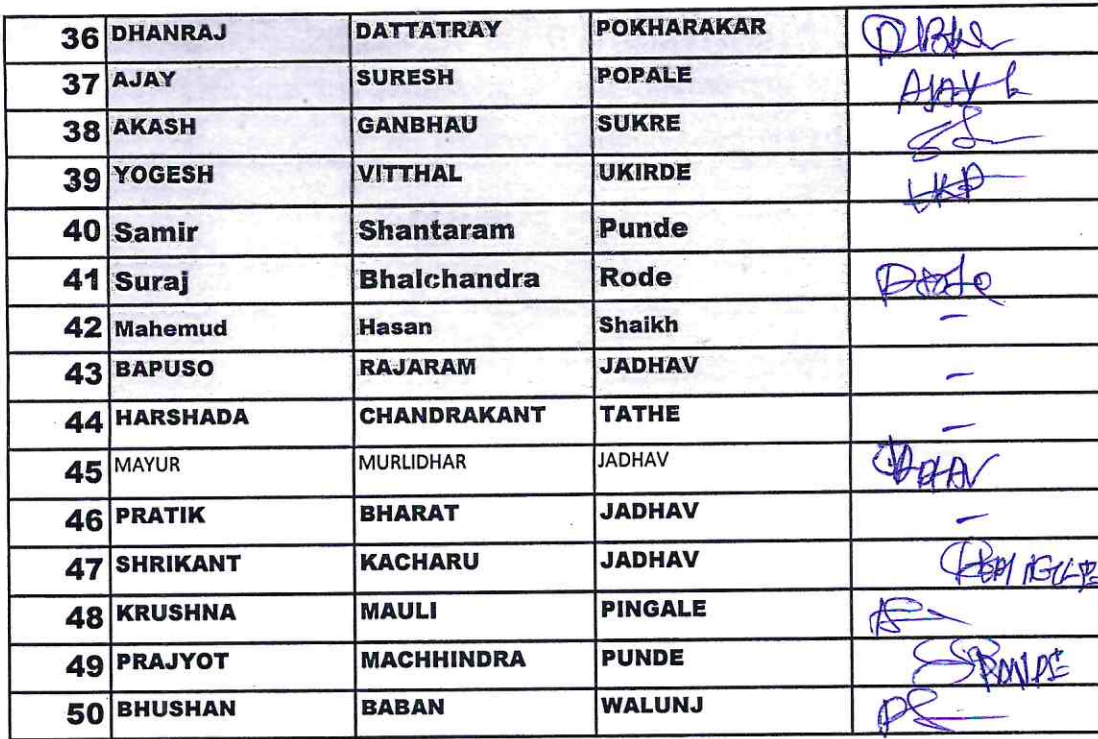 36 DHANRAJ DATTATRAY POKHARAKAR
37 AJAY SURESH POPALE AJAY
38 AKASH GANBHAU SUKRE
39 YOGESH VITTHAL UKIRDE
40 Samir Shantaram Punde
41 Suraj Bhalchandra Rode
42 Mahemud Hasan Shaikh -
43 BAPUSO RAJARAM JADHAV -
44 HARSHADA CHANDRAKANT TATHE -
45 MAYUR MURLIDHAR JADHAV
46 PRATIK BHARAT JADHAV -
47 SHRIKANT KACHARU JADHAV
48 KRUSHNA MAULI PINGALE
49 PRAJYOT MACHHINDRA PUNDE
50 BHUSHAN BABAN WALUNJ